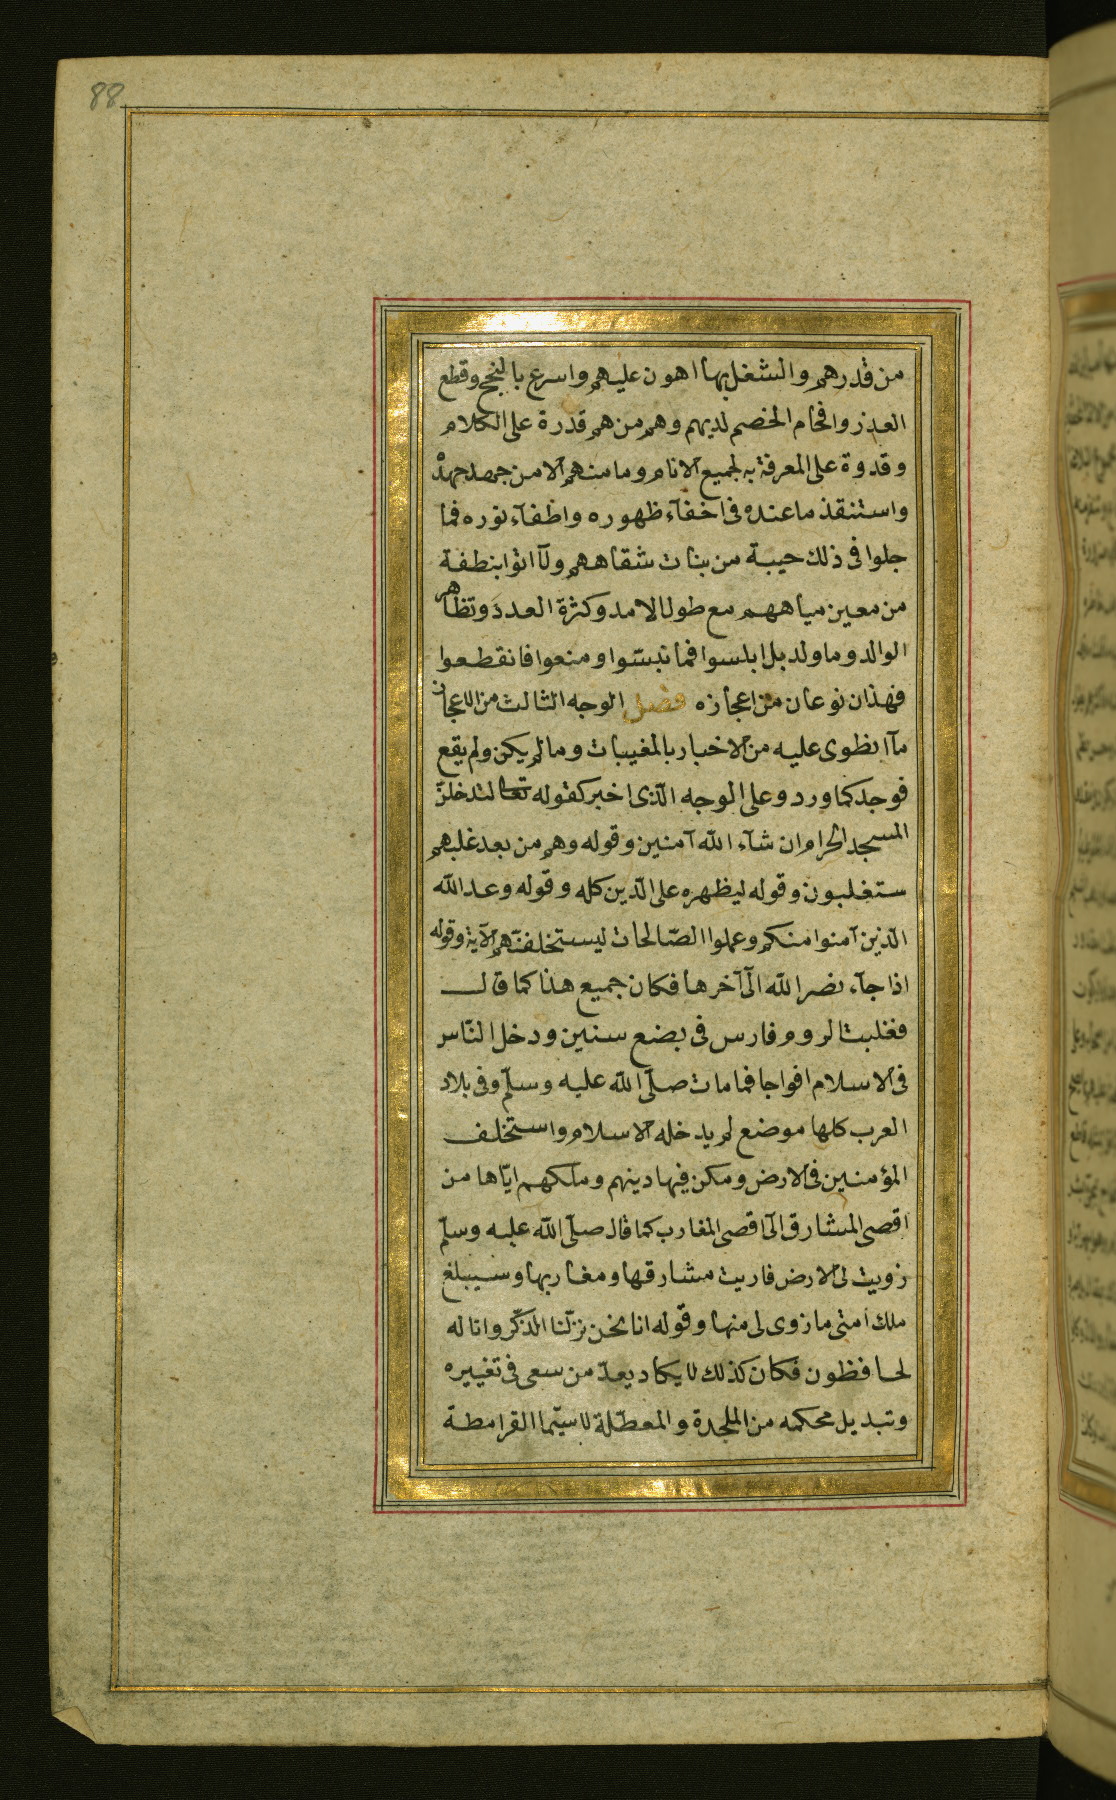 88
من قدرهم والشغل بها اهون عليهم واسرع بالنجح وقطع
العذر وافحام الخصم لديهم وهم من هم قدرة على الكلام
وقدوة على المعرفة به لجميع الانام وما منهم الا من جهد جهده
واستنفذ ما عنده فى اخفآء ظهوره واطفآء نوره فما
جلوا فى ذلك حبيبة من بنات شفاههم ولا اتوا بنطفة
من معين مياههم مع طول الامد وكثرة العدد وتظاهر
الوالد وما ولد بل ابلسوا فما نبسّوا ومنعوا فانقطعوا
فهذان نوعان من اعجازه فصل الوجه الثالث من الاعجاز
مآ انطوى عليه من الاخبار بالمغيبات وما لم يكن ولم يقع
فوجد كما ورد وعلى الوجه الّذى اخبر كقوله تعالى لتدخلنّ
المسجد الحرام ان شآء الله آمنين وقوله وهم من بعد غلبهم
ستغلبون وقوله ليظهره على الدّين كله وقوله وعد الله
الّذين آمنوا منكم وعملوا الصّالحات ليستخلفنّهم الآية وقوله
اذا جآء نصر الله الى آخرها فكان جميع هذا كما قال
فغلبت الروم فارس فى بضع سنين ودخل النّاس
فى الاسلام افواجا فما مات صلّى الله عليه وسلّم وفى بلاد
العرب كلها موضع لم يدخله الاسلام واستخلف
المؤمنين فى الارض ومكن فيها دينهم وملكهم ايّاها من
اقصى المشارق الى اقصى المغارب كما قال صلّى الله عليه وسلّم
زويت لى الارض فاريت مشارقها ومغاربها وسيبلغ
ملك امتى ما زوى لى منها وقوله انا نحن نزّلنا الذكر وانا له
لحافظون فكان كذلك لا يكاد يعدّ من سعى فى تغييره
وتبديل محكمه من الملحدة والمعطّلة لا سيّما القرامطة